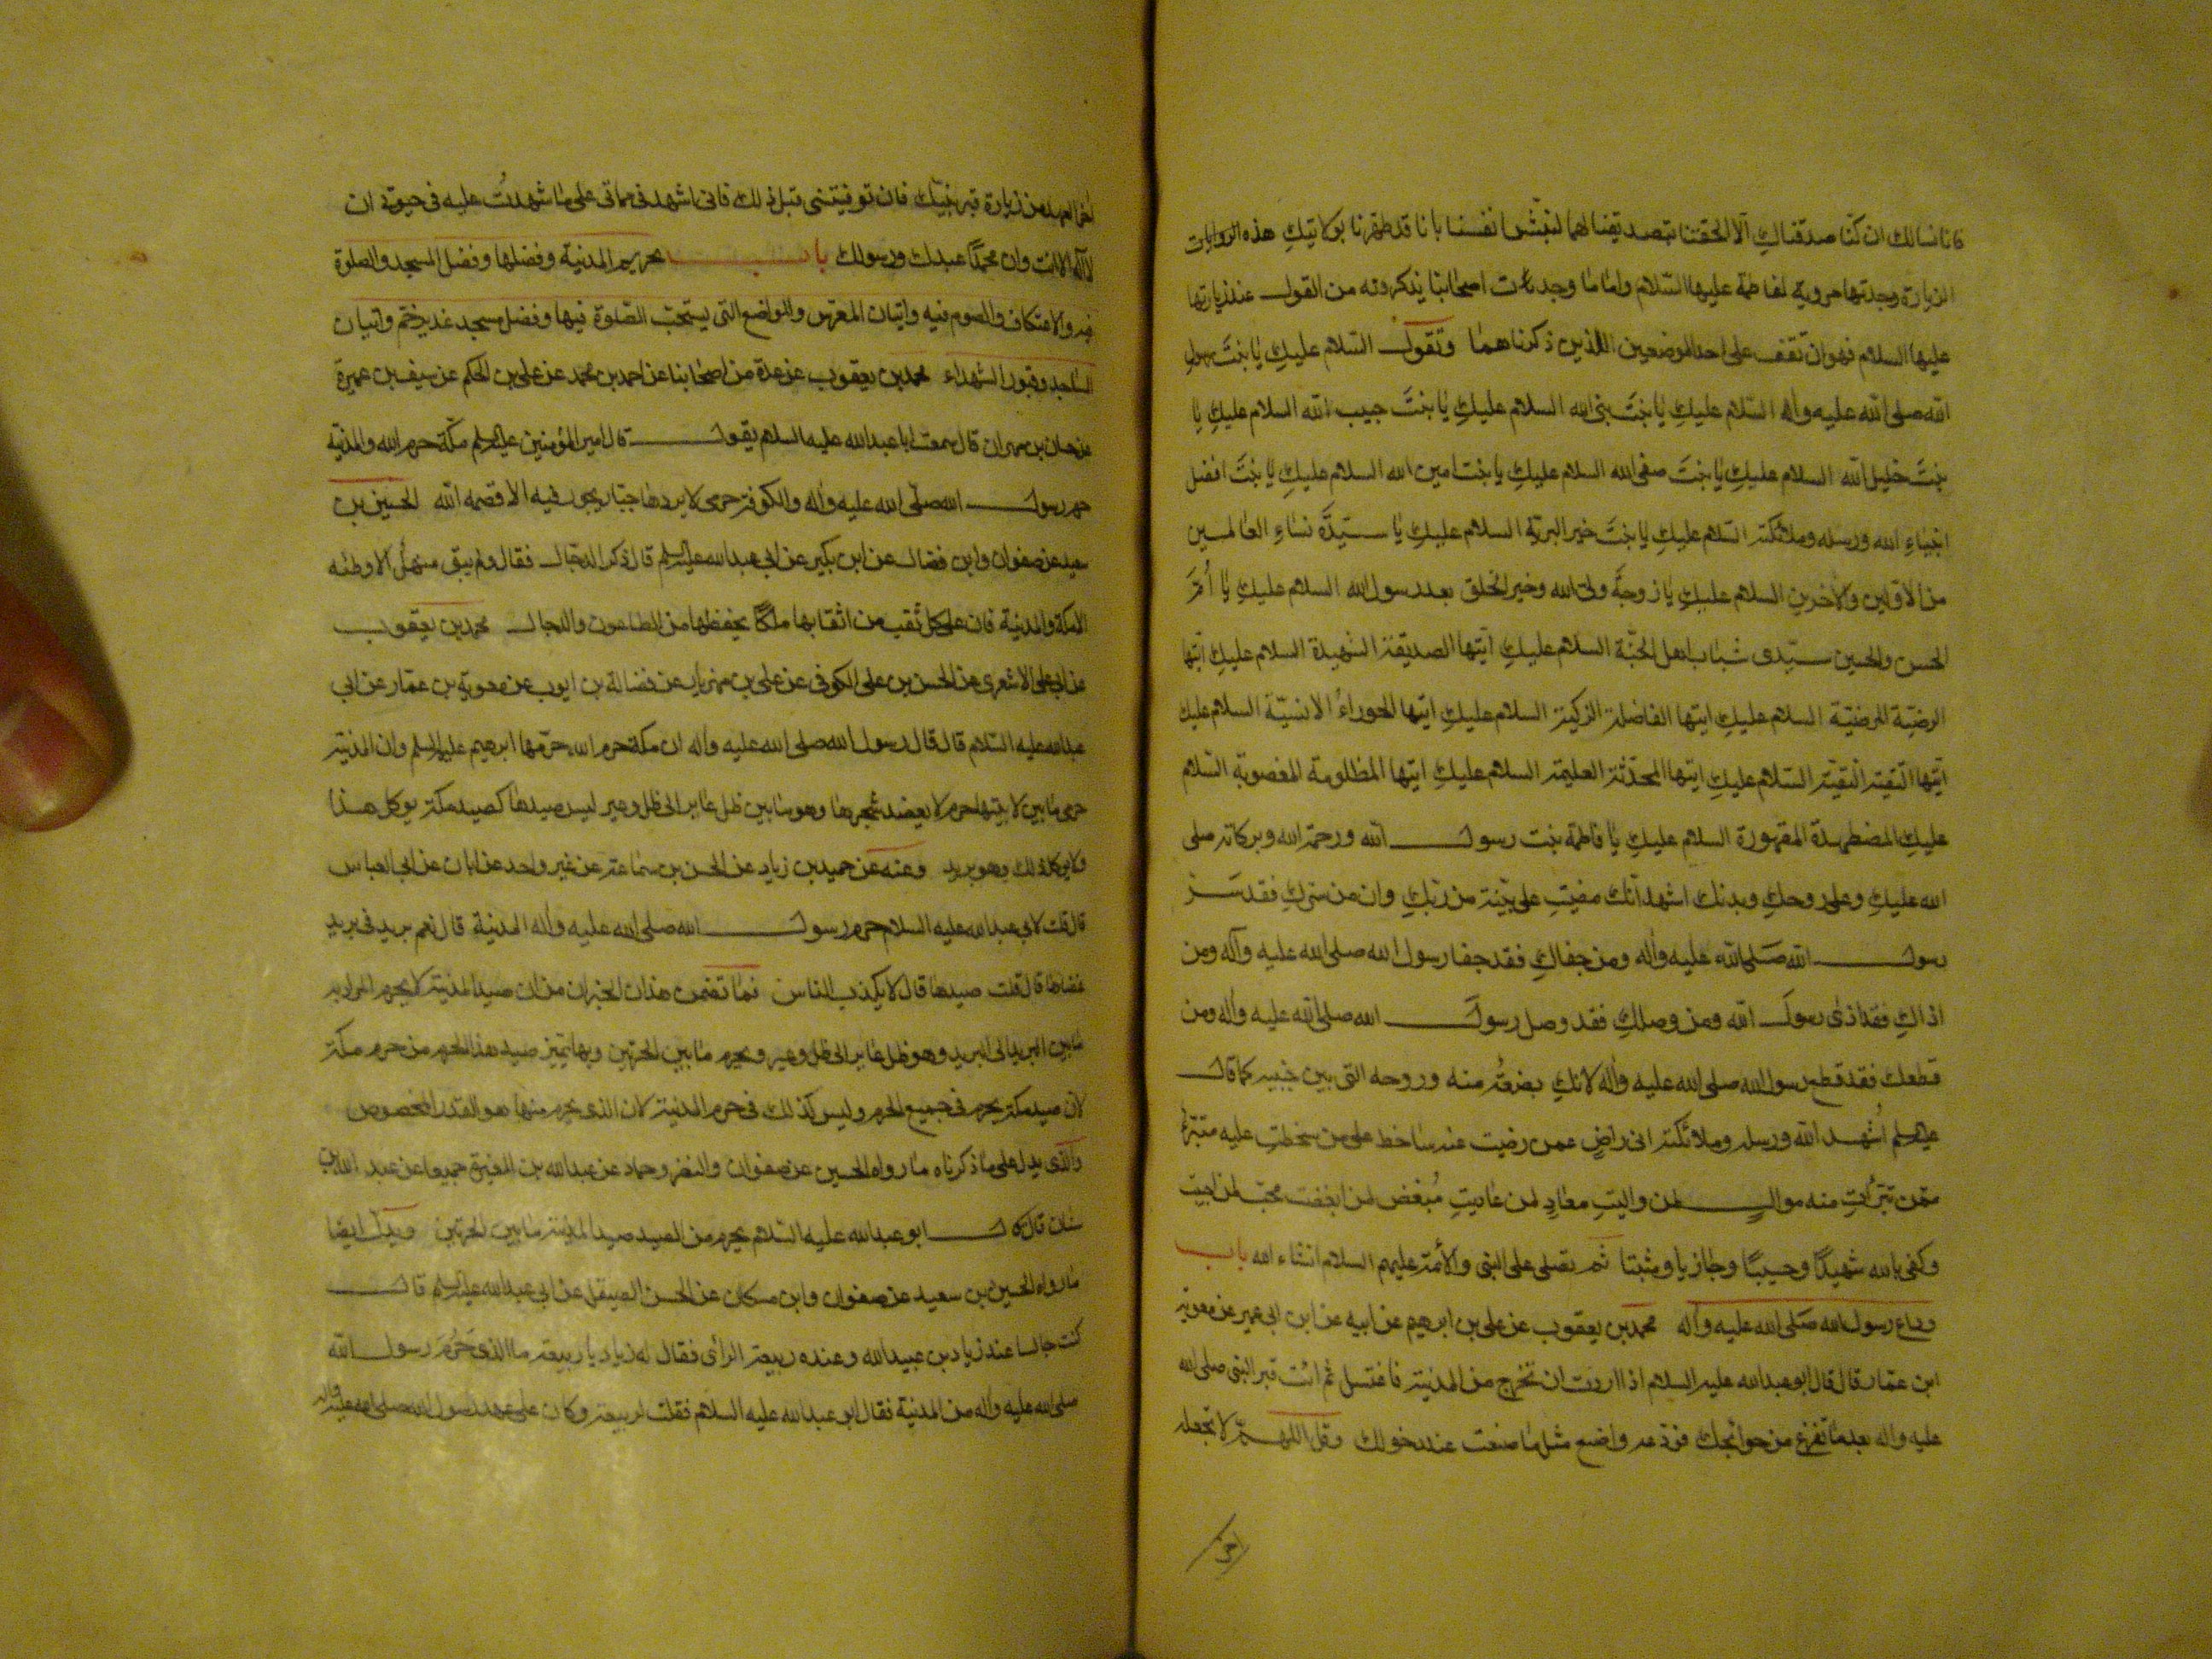 فانا نسالك ان كنا صدقناك الا الحقتنا بتصديقنا لهما لنبشر انفسنا بانا قد طهرنا بولايتك هذه الروايات
الزيارة وجدتها مروية لفاطمة عليها السلام واما ما وجدت اصحابنا يذكرونه من القول عند زيارتها
عليها السلام فهو ان تقف على احد الموضعين اللذين ذكرناهما وتقول السلام عليكِ يا بنتَ رسول
الله صلى الله عليه واله السلام عليكِ يا بنتَ نبى الله السلام عليكِ يا بنتَ حبيب الله السلام عليكِ يا
بنتَ خليل الله السلام عليكِ يا بنتَ صفى الله السلام عليكِ يا بنت امين الله السلام عليكِ يا بنتَ افضل
انبياءِ الله ورسله وملائكته السلام عليكِ يا بنتَ خير البرية السلام عليكِ يا سيّدةَ نساءِ العالمين
من الاولين والاخرين السلام عليكِ يا زوجةَ ولى الله وخير الخلق بعد رسول الله السلام عليكِ يا اُمَّ
الحسن والحسين سيّدى شباب اهل الجنّة السلام عليكِ ايّتها الصديقة الشهيدة السلام عليكِ ايتها
الرضيّة المرضيّة السلام عليكِ ايتها الفاضلة الزكية السلام عليكِ ايتها الحوراءُ الانسيّة السلام عليك
ايّتها التقية النقية السلام عليكِ ايتها المحدّثة العليمة السلام عليكِ ايتها المظلومة المغصوبة السلام
عليكِ المضطهدة المقهورة السلام عليكِ يا فاطمة بنت رسول الله ورحمة الله وبركاته صلى
الله عليكِ وعلى روحكِ وبدنك اشهد انّك مضيتِ على بيّنة من ربّكِ وان من سركِ فقد سَرّ
رسول الله صَلى الله عليه واله ومن جفاكِ فقد جفا رسول الله صلى الله عليه وآله ومن
اذاكِ فقد اذى رسولَ الله ومن وصلكِ فقد وصل رسولَ الله صلى الله عليه واله ومن
قطعك فقد قطع رسول الله صلى الله عليه واله لانكِ بضعةُ منه وروحه التى بين جنبيه كما قال
عليه السلم اُشهد الله ورسله وملائكته انى راضٍ عمن رضيت عنه ساخط على من سخطتِ عليه متبرّءُ
ممّن تبرّاتِ منه موالٍ لمن واليتِ معادٍ لمن عاديتِ مُبغض لمن ابغضت محبّ لمن احببت
وكفى بالله شهيدًا وحسيبًا وجازيا ومثيبًا ثم تصلى على النبى والائمة عليهم السلام انشاء الله باب
وداع رسول الله صَلى الله عليه واله محمد بن يعقوب عن على بن ابرهيم عن ابيه عن ابن ابى عمير عن معوية
ابن عمّار قال قال ابو عبد الله عليه السلام اذا اردت ان تخرج من المدينة فاغتسل ثم ائت قبر النبى صلى الله
عليه واله بعد ما تفرغ من حوائجك فودّعه واصنع مثل ما صنعت عند دخولك وقل اللهمّ لا تجعله
اخر العهد من زيارة قبر نبيّك فان توفيتنى قبل ذلك فانى اشهد فى مماتى على ما شهدتُ عليه فى حيوتى ان
لا اله الا انت وان محمدًا عبدك ورسولك باب تحريم المدينة وفضلها وفضل المسجد والصلوة
فيه والاعتكاف والصوم فيه واتيان المعرس والمواضع التى يستحبّ الصّلوة فيها وفضل مسجد غدير خم واتيان
المساجد وقبور الشهداء محمد بن يعقوب عن عدة من اصحابنا عن احمد بن محمد عن على بن الحكم عن سيف بن عميرة
عن حسان بن مهران قال سمعت ابا عبد الله عليه السلام يقول قال امير المؤمنين عليه السلم مكّة حرم الله والمدينة
حرم رسول الله صلّى الله عليه واله والكوفة حرمى لا يريدها جبّار يجور فيه الا قصمه الله الحسين بن
سعيد عن صفوان وابن فضال عن ابن بكير عن ابى عبد الله عليه السلم قال ذكر الدجّال فقال ولم يبق منهلُ الا وطئه
الا مكة والمدينة فان على كل ثقب من اثقابها ملكًا يحفظها من الطاعون والدجال محمد بن يعقوب
عن ابى على الاشعرى عن الحسن بن على الكوفى عن على بن مهزيار عن فضالة بن ايوب عن معوية بن عمّار عن ابى
عبد الله عليه السّلام قال قال رسول الله صلى الله عليه واله ان مكة حرم الله حرّمها ابرهيم عليه السلم وان المدينة
حرمى ما بين لابتيها حرم لا يعضد شجرها وهو ما بين ظل عاير الى ظل وعير ليس صيدها كصيد مكة يوكل هذا
ولا يوكل ذلك وهو بريد وعنه عن حميد بن زياد عن الحسن بن سماعة عن غير واحد عن ابان عن ابى العباس
قال قلت لابى عبد الله عليه السلام حرم رسول الله صلى الله عليه واله المدينة قال نعم بريد فى بريد
عضاها قال قلت صيدها قال لا يكذب الناس فما تضمن هذان الخبران من ان صيد المدينة لا يحرم المراد به
ما بين البريد الى البريد وهو ظل عاير الى ظل وعير ويحرم ما بين الحرّتين وبها تميّز صيد هذا الحرم من حرم مكّة
لان صيد مكة يحرم فى جميع الحرم وليس كذلك فى حرم المدينة لان الذى يحرم منها هو القدر المخصوص
والّذى يدل على ما ذكرناه ما رواه الحسين عن صفوان والنضر وحماد عن عبد الله بن المغيرة جميعا عن عبد الله بن
سنان قال قال ابو عبد الله عليه السّلام يحرم من الصيد صيد المدينة ما بين الحرّتين ويدلّ ايضا
ما رواه الحسين بن سعيد عن صفوان وابن مسكان عن الحسن الصيقل عن ابى عبد الله عليه السلم قال
كنت جالسا عند زياد بن عبيد الله وعنده ربيعة الرأى فقال له زياد يا ربيعة ما الذى حَرَّمَ رسول الله
صلى الله عليه واله من المدينة فقال ابو عبد الله عليه السلام فقلت لربيعة وكان على عهد رسول الله صلى الله عليه واله